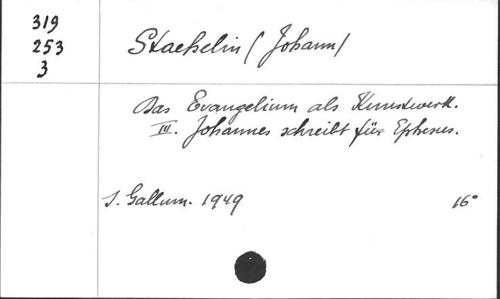 319
253
3
Staehelin (Johann)
Das Evangelium als Kunstwerk.
III. Johannes schreibt für Ephesus.
S. Gallum. 1949 16°